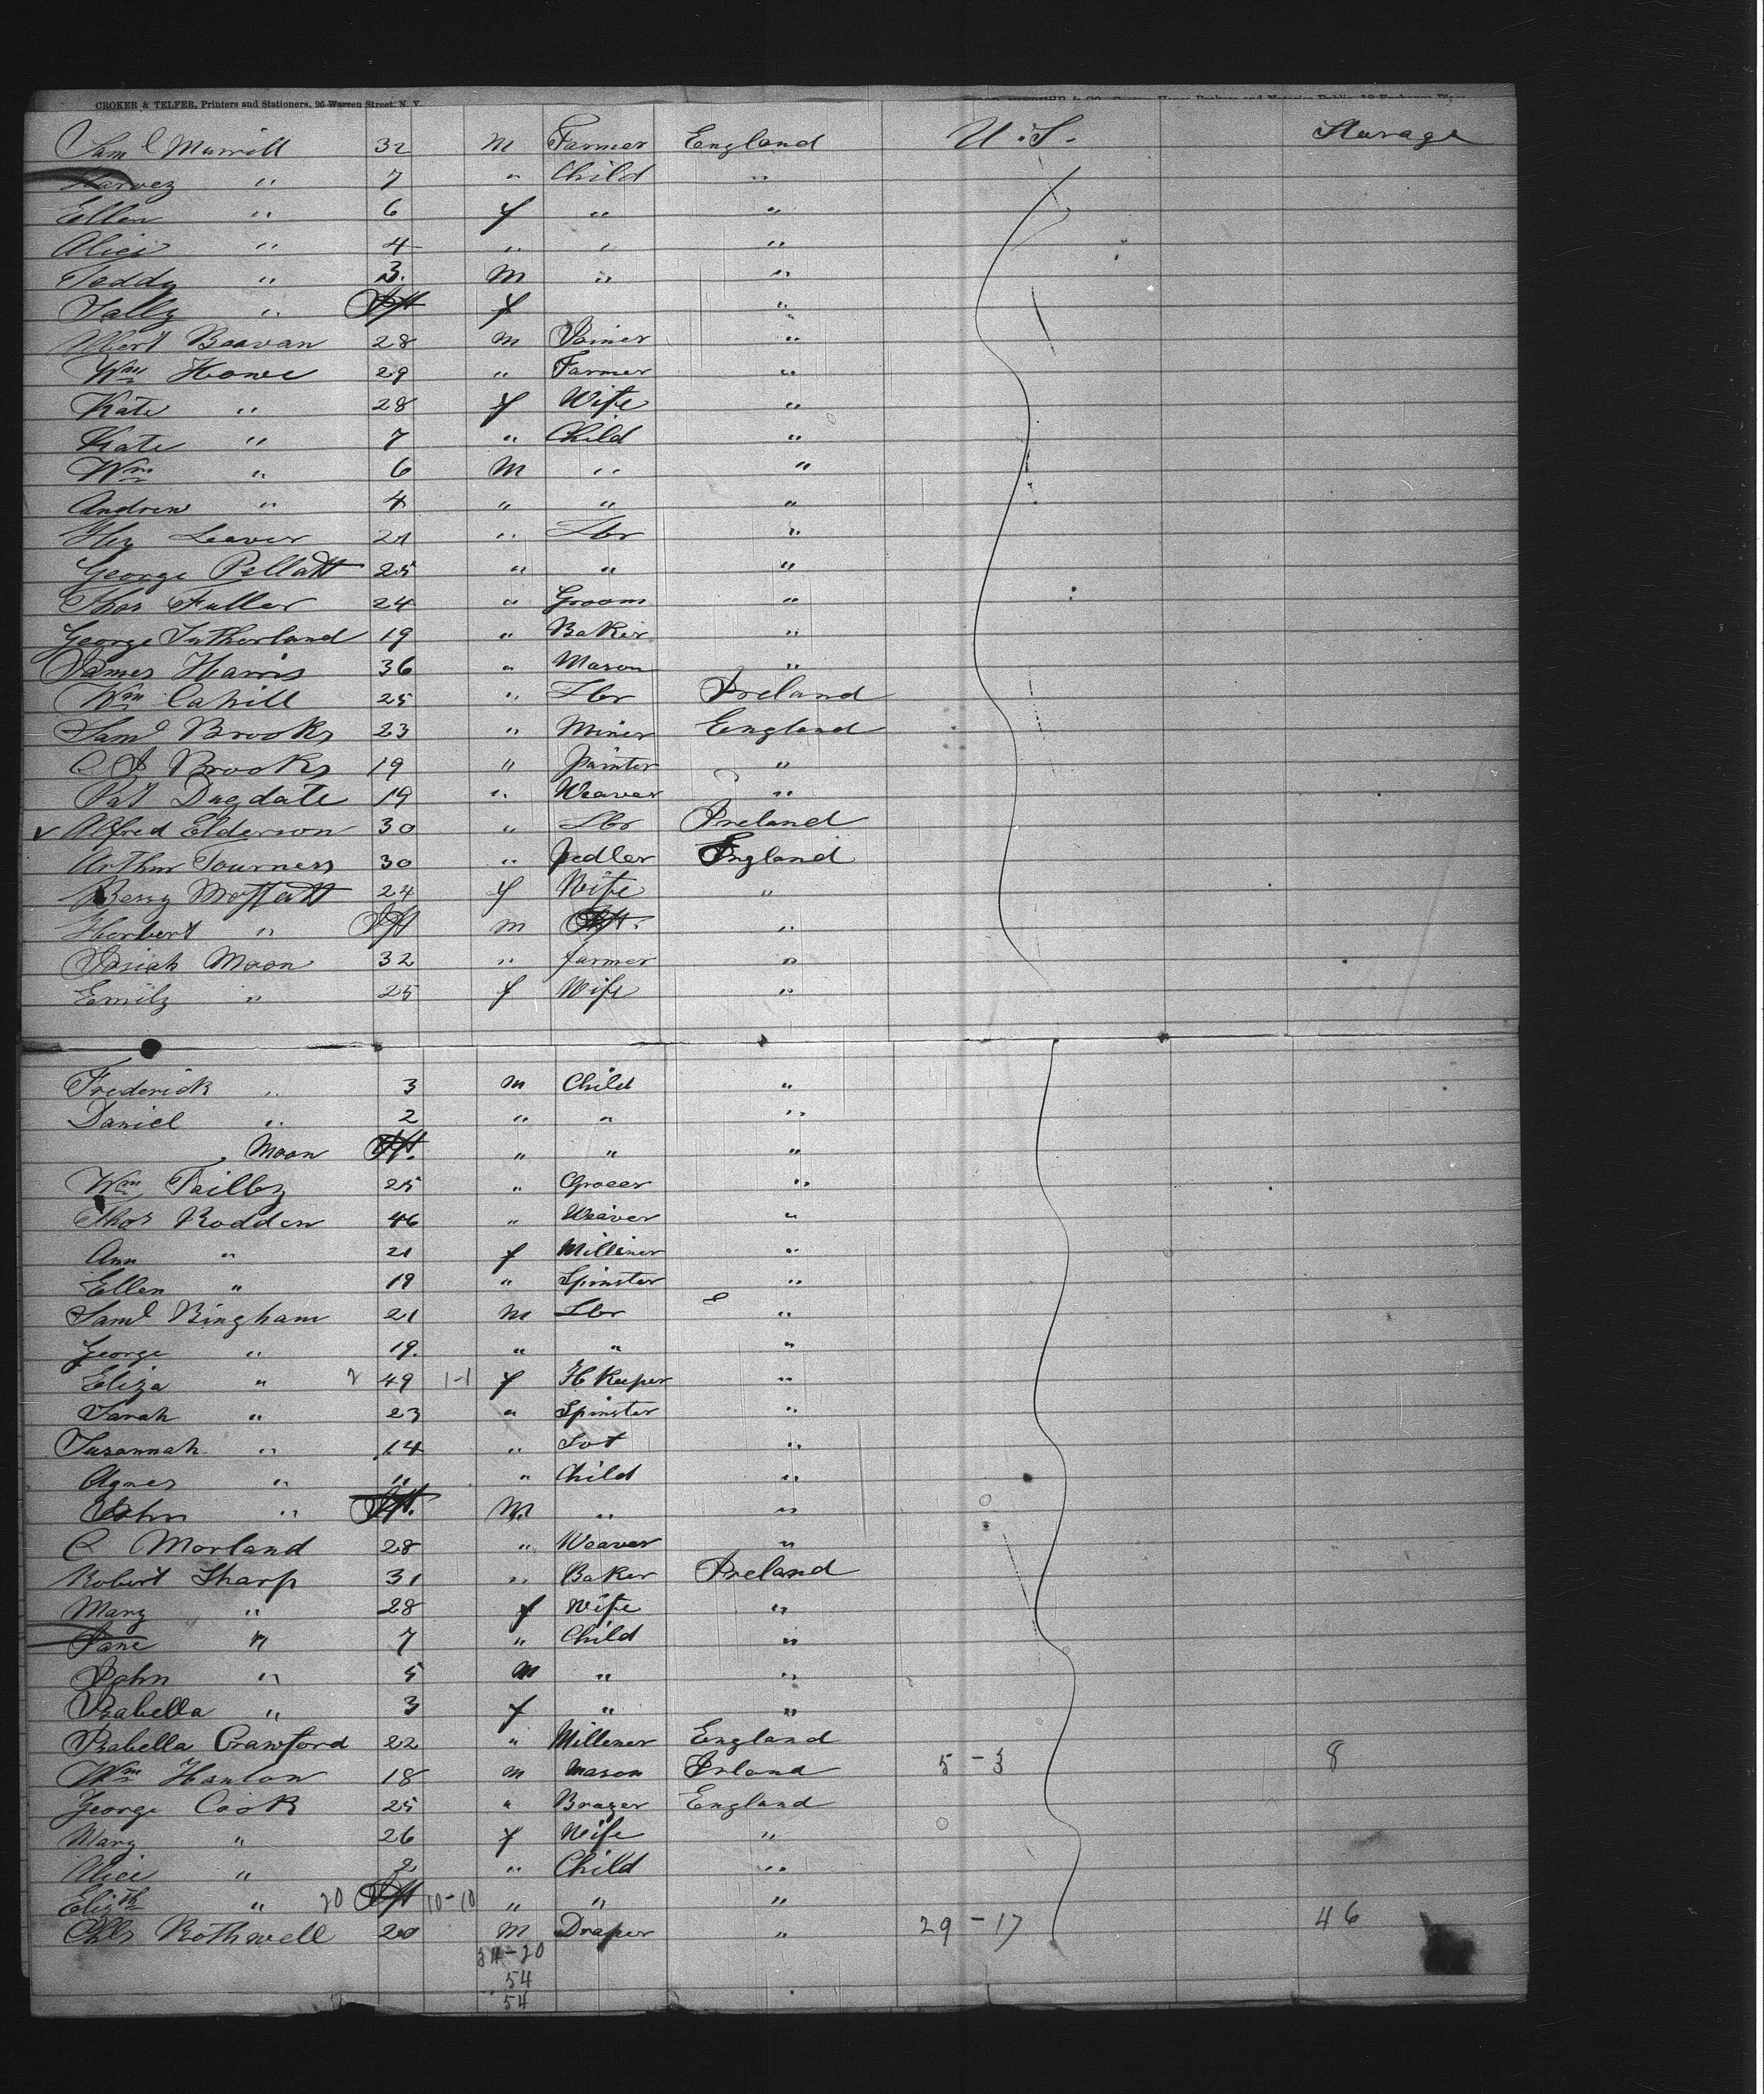 CROKER & TELFER, Printers and Stationers, 96 Warren Street, N. Y.
Saml Murrill 32 M Farmer England U.S. Sterage
Harvey " 7 " Child "
Ellen " 6 f " "
Alice " 4 " " "
Teddy " 3. M " "
Sally " Inft f "
Albert Beavan 28 m Joiner "
Wm Howe 29 " Farmer "
Kate " 28 f Wife "
Kate " 7 " Child "
Wm " 6 M " "
Andrew " 4 " " "
Hy Leaver 21 " Lbr "
George Pellatt 25 " " "
Thos Fuller 24 " Groom "
George Sutherland 19 " Baker "
James Harris 36 " Mason "
Wm Cahill 25 " Lbr Ireland
Saml Brooks 23 " Miner England
Brooks 19 " painter "
Pat Dugdate 19 " Weaver "
v Alfred Elderson 30 " Lbr Ireland
Arthur Tourness 30 " pedler England
Bessy Moffatt 24 f Wife "
Herbert " Inft m Inft. "
Josiah Moon 32 " farmer "
Emily " 25 f Wife "
Frederick " 3 m Child "
Daniel " 2 " " "
Moon Inft. " " "
Wm Tailby 25 " Grocer "
Thos Rodden 46 " Weaver "
Ann " 21 f Milliner "
Ellen " 19 " Spinster "
Saml Bingham 21 M Lbr E "
George " 19. " " "
Eliza " 49 1-1 f H Keeper "
Sarah " 23 " Spinster "
Susannah " 14 " Svt "
Agnes " 11 " Child "
John " Inft. M " "
C Morland 28 " Weaver "
Robert Sharp 31 " Baker Ireland
Mary " 28 f Wife "
Jane " 7 " Child "
John " 5 m " "
Isabella " 3 f " "
Isabella Crawford 22 " Millener England
Wm Hanlon 18 m Mason Irland 5-3 8
George Cook 25 " Brazer England
Mary " 26 f Wife "
Alice " 2 " Child "
Elizth " 20 Inft 10-10 " " "
Chls Rothwell 20 M Draper " 29-17 46
34-20
54
54